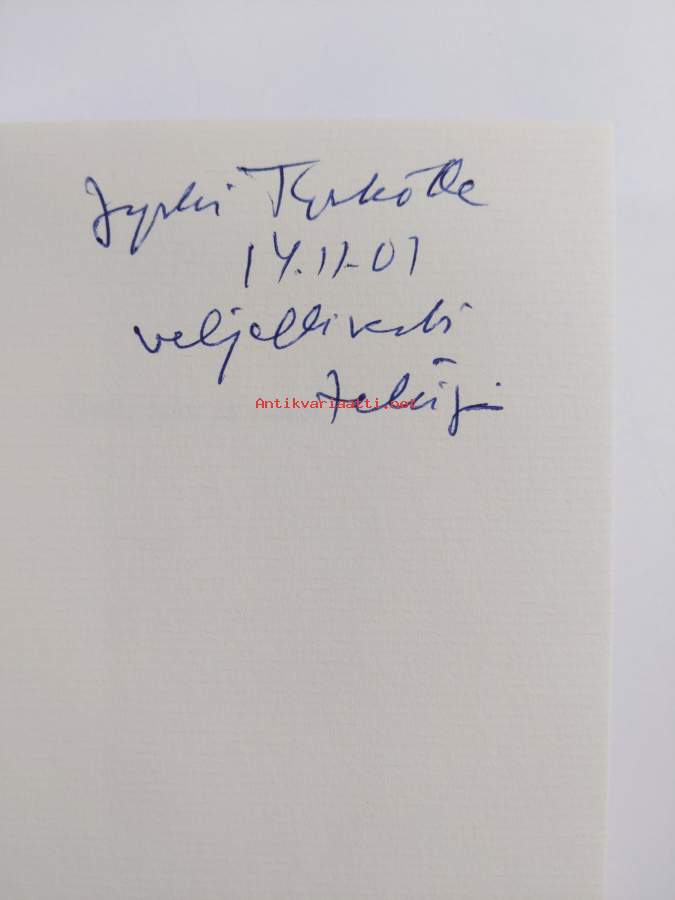 Jyrki Tyrkölle
14.11-01
veljellisesti
Tekijä
Antikvariaatti.net